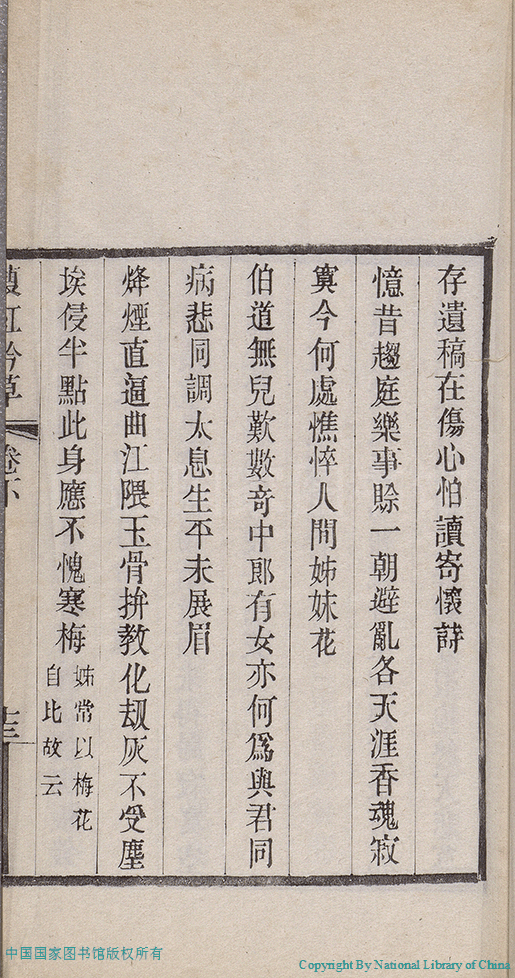 存遺稿在傷心怕讀寄懷詩
憶昔趨庭樂事賒一朝避亂各天涯香魂寂
寞今何處憔悴人間姊妹花
伯道無兒歎數奇中郎有女亦何爲與君同
病悲同調太息生平未展眉
烽煙直逼曲江隈玉骨拚教化刼灰不受塵
埃侵半點此身應不愧寒梅
姊常以梅花
自比故云
紅吟草
卷下
十三
中国国家图书馆版权所有
Copyright By National Library of China